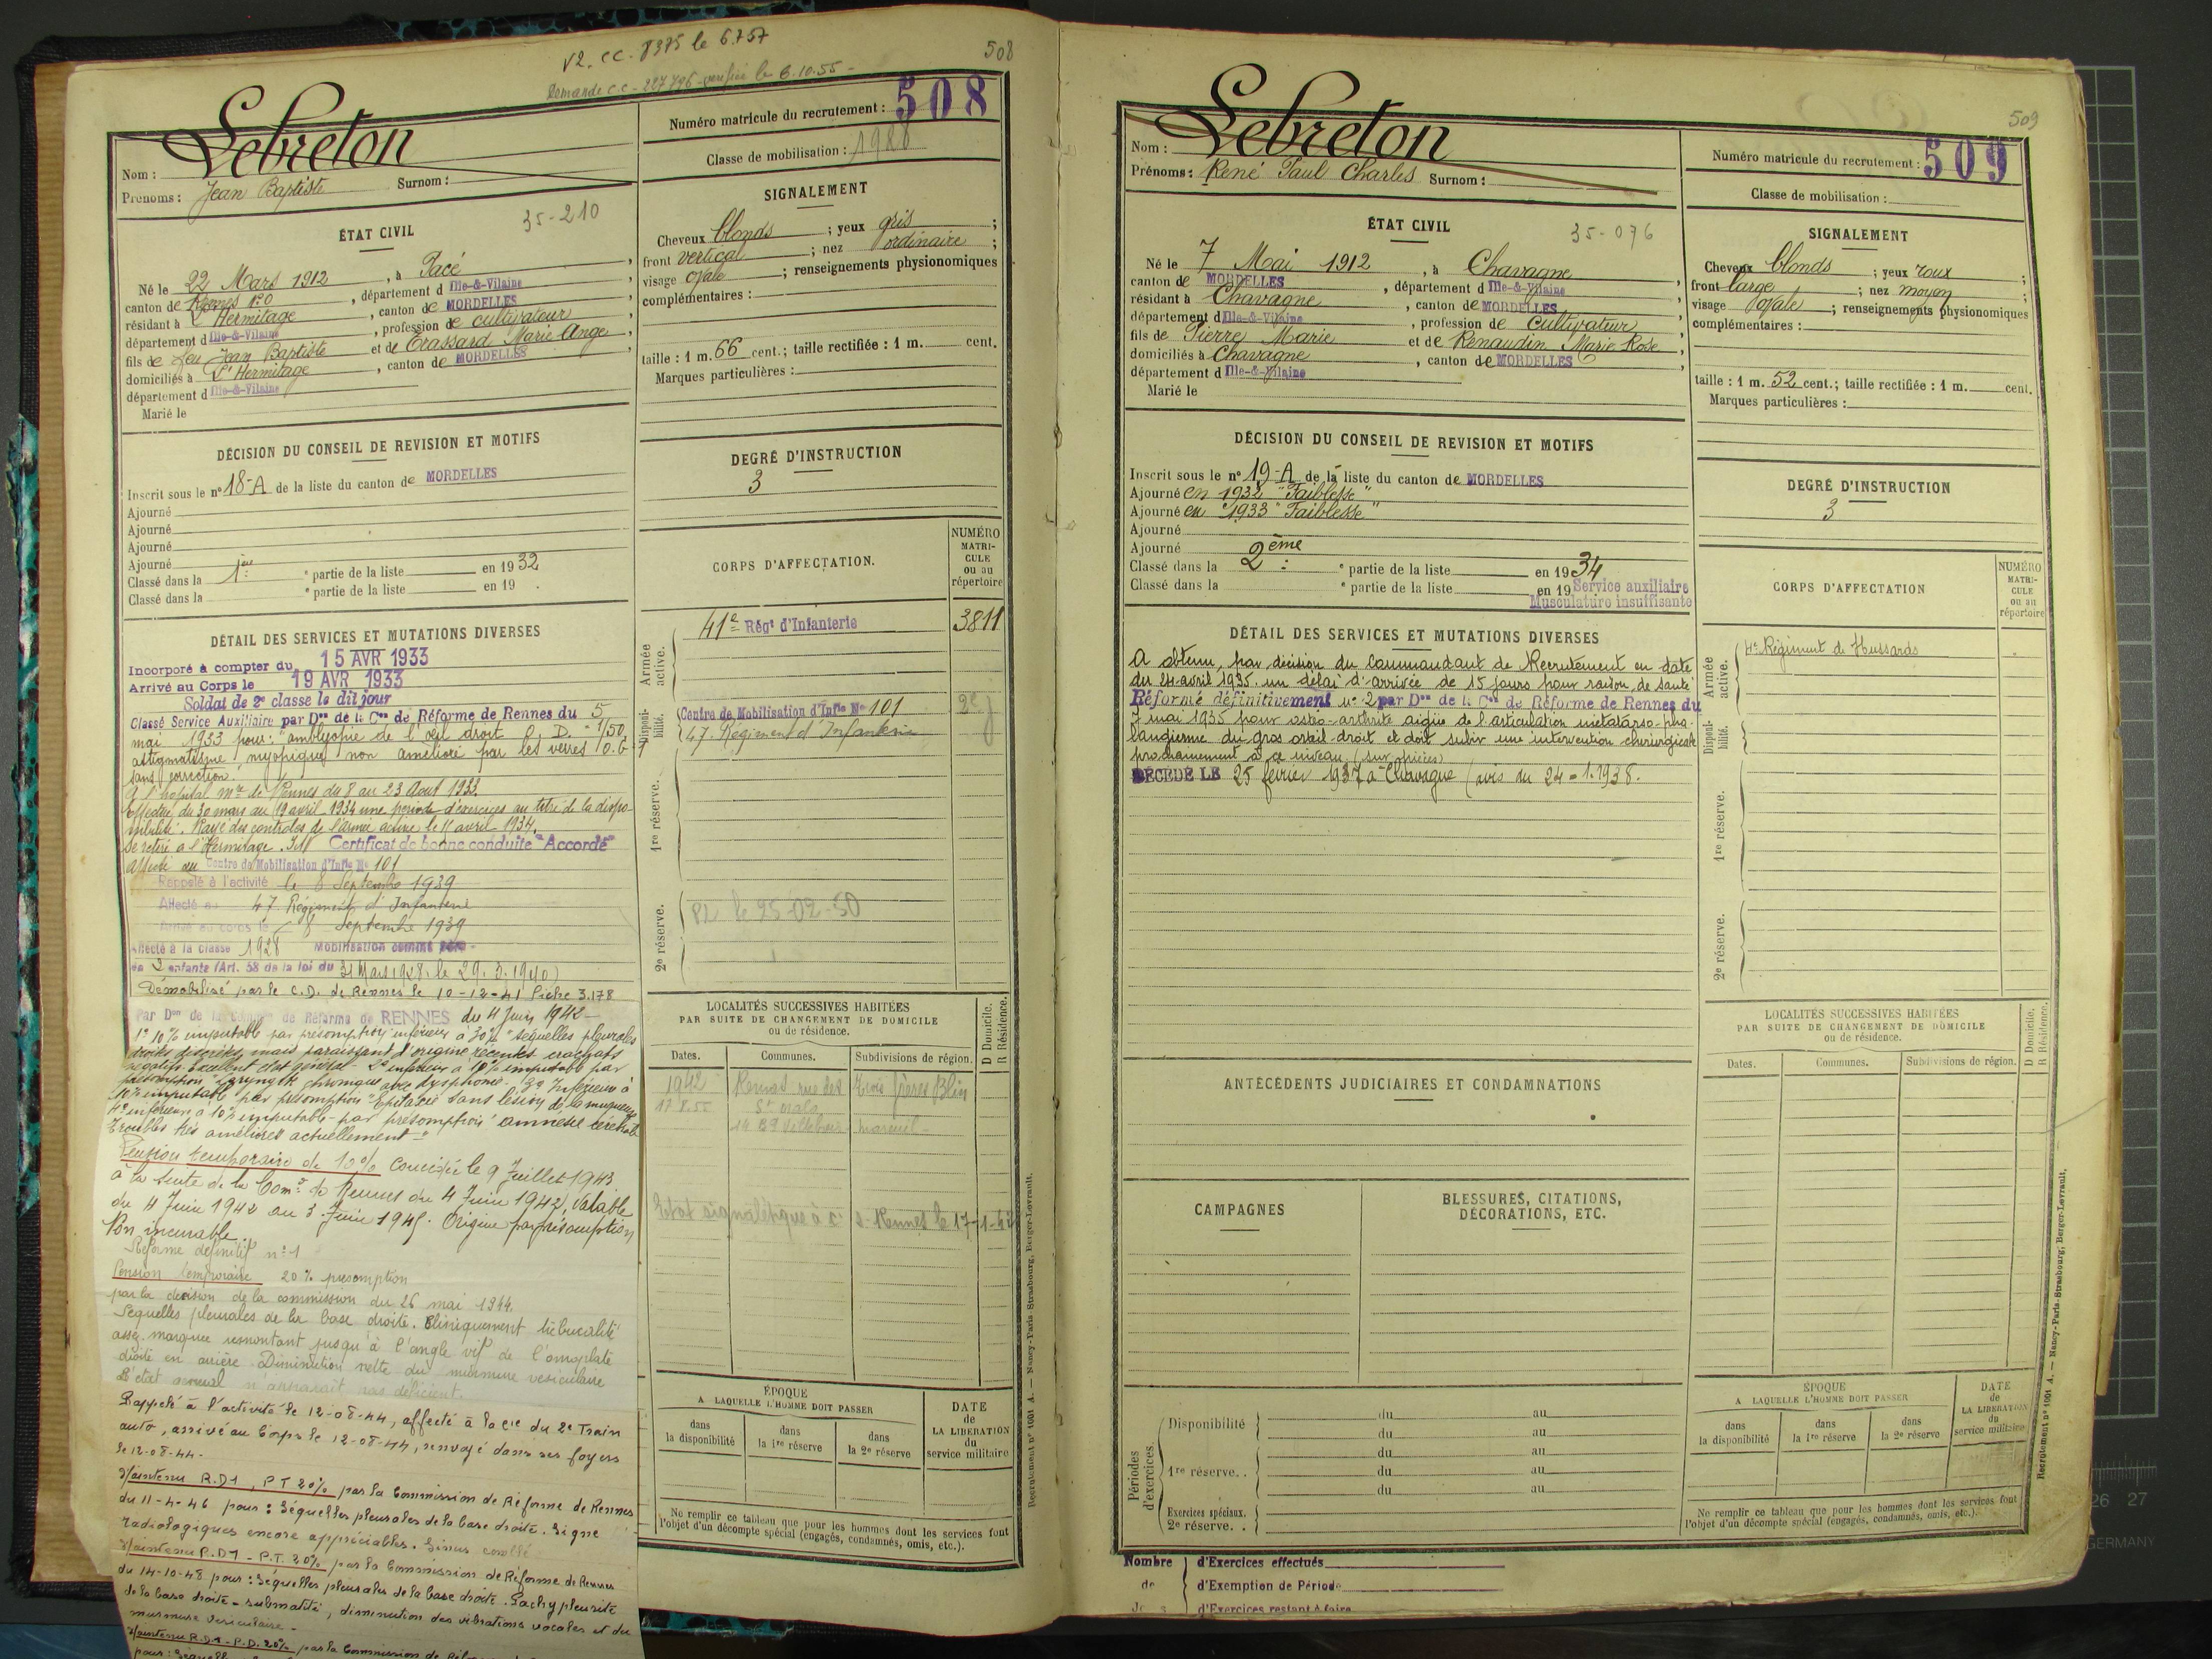 V2. CC. 8375 le 6.7.57
Demande C.C - 227796 - vérifié le 6.10.55 -
508
Lebreton
Nom :
Prénoms : Jean Baptiste Surnom :
35-210
ÉTAT CIVIL
Né le 22 Mars 1912, à Pacé,
canton de Rennes N.O, département d Ille-&-Vilaine
résidant à L'Hermitage, canton de MORDELLES
département d Ille-&-Vilaine, profession de cultivateur
fils de feu Jean Baptiste et de Crassard Marie Ange,
domiciliés à L'Hermitage, canton de MORDELLES
département d Ille-&-Vilaine
Marié le
DÉCISION DU CONSEIL DE REVISION ET MOTIFS
Inscrit sous le n° 18-A de la liste du canton de MORDELLES
Ajourné
Ajourné
Ajourné
Ajourné
Classé dans la 1ère e partie de la liste en 1932
Classé dans la e partie de la liste en 19 .
DÉTAIL DES SERVICES ET MUTATIONS DIVERSES
Incorporé à compter du 15 AVR 1933
Arrivé au Corps le 19 AVR 1933
Soldat de 2e classe le dit jour
Classé Service Auxiliaire par Don de la Con de Réforme de Rennes du 5
mai 1933 pour : "amblyopie de l'œil droit O. D. = 1/50,
astigmatisme myopique non amélioré par les verres O.G
sans correction."
A l'hopital Mre de Rennes du 8 au 23 Aout 1933.
Effectue du 30 mars au 19 avril 1934 une période d'exercices au titre de la dispo-
nibilité. Rayé des controles de l'armée active le 11 avril 1934.
Se retire à l'Hermitage. I&V Certificat de bonne conduite "Accordé"
Affecté au Centre de Mobilisation d'Infie No 101
Rappelé à l'activité le 8 Septembre 1939
Affecté au 47 Régiment d'Infanterie
Arrivé au corps le 8 Septembre 1939
Affecté à la classe 1928 Mobilisation comme père
de 2 enfants (Art. 58 de la loi du 31 Mars 1928. le 29.3.1940)
Démobilisé par le C.D. de Rennes le 10-12-41 Fiche 3.178
Par Don de la Comon de Réforme de RENNES du 4 Juin 1942 -
1° 10% imputable par présomption inférieur à 30% "séquelles pleurales
droites discrètes, mais paraissant d'origine récente crachats
négatifs. Excellent état général - 2° inférieur à 10% imputable par
présomption "Laryngite chronique avec dysphonie - 3° Inférieur à
10% imputable par présomption "Epistaxis sans lésion de la muqueuse
4° inférieur à 10% imputable par présomption "amnésie cérébrale
troubles très améliorés actuellement"
Pension temporaire de 10% concédée le 9 Juillet 1943
à la suite de la Comon de Rennes du 4 Juin 1942, valable
du 4 Juin 1942 au 3 Juin 1945. Origine par présomption
Non incurable.
Réforme définitif n° 1
Pension temporaire 20% présomption
par la décision de la commission du 26 mai 1944.
Sequelles pleurales de la base droite. Cliniquement
assez marquée remontant jusqu'à l'angle vif de l'omoplate
droite en arrière. Diminution nette du murmure vésiculaire
L'état général n'apparaît pas déficient.
Rappelé à l'activité le 12-08-44, affecté à la Cie du 2e Train
auto, arrivé au Corps le 12-08-44, renvoyé dans ses foyers
le 12-08-44.
Maintenu R.D1, P.T 20% par la Commission de Réforme de Rennes
du 11-4-46 pour : Séquelles pleurales de la base droite. Signe
radiologiques encore appréciables. Sinus comblé
Maintenu R.D1 - P.T. 20% par la Commission de Réforme de Rennes
du 14-10-48 pour : Séquelles pleurales de la base droite. Pachypleurite
de la base droite - submatité, diminution des vibrations vocales et du
murmure vésiculaire -
Maintenu R.D1 - P.D. 20% par la Commission de
pour :
Numéro matricule du recrutement : 508
Classe de mobilisation : 1928
SIGNALEMENT
Cheveux blonds ; yeux gris ;
front vertical ; nez ordinaire ;
visage ovale ; renseignements physionomiques
complémentaires :
taille : 1 m. 66 cent.; taille rectifiée : 1 m. cent.
Marques particulières :
DEGRÉ D'INSTRUCTION
3
CORPS D'AFFECTATION.
NUMÉRO MATRI- CULE ou au répertoire
Armée active.
41e Régt d'Infanterie 3811
Disponi- bilité.
Centre de Mobilisation d'Infie No 101
47 Régiment d'Infanterie
1re réserve.
2e réserve.
PL le 25-02-50
LOCALITÉS SUCCESSIVES HABITÉES
PAR SUITE DE CHANGEMENT DE DOMICILE
ou de résidence.
D Domicile. R Résidence.
Dates. Communes. Subdivisions de région.
1942 Rennes rue des Trois frères Blin
17.8.55 St Malo
14 Bd Villebois Mareuil -
Etat signalétique à Rennes le 17-1-42
ÉPOQUE
A LAQUELLE L'HOMME DOIT PASSER
dans la disponibilité
dans la 1re réserve
dans la 2e réserve
DATE de LA LIBERATION du service militaire
Ne remplir ce tableau que pour les hommes dont les services font
l'objet d'un décompte spécial (engagés, condamnés, omis, etc.).
Recrutement n° 1001 A. — Nancy-Paris-Strasbourg, Berger-Levrault.
509
Lebreton
Nom :
Prénoms : René Paul Charles Surnom :
ÉTAT CIVIL
35-076
Né le 7 Mai 1912, à Chavagne
canton de MORDELLES, département d Ille-&-Vilaine
résidant à Chavagne, canton de MORDELLES
département d Ille-&-Vilaine, profession de cultivateur
fils de Pierre Marie et de Renaudin Marie Rose,
domiciliés à Chavagne, canton de MORDELLES
département d Ille-&-Vilaine
Marié le
DÉCISION DU CONSEIL DE REVISION ET MOTIFS
Inscrit sous le n° 19-A de la liste du canton de MORDELLES
Ajourné en 1932 "Faiblesse"
Ajourné en 1933 "Faiblesse"
Ajourné
Ajourné
Classé dans la 2ème e partie de la liste en 1934
Classé dans la e partie de la liste en 19 Service auxiliaire
Musculature insuffisante
DÉTAIL DES SERVICES ET MUTATIONS DIVERSES
A obtenu, par décision du Commandant de Recrutement en date
du 24 avril 1935 un délai d'arrivée de 15 jours pour raison de santé
Réformé définitivement n° 2 par Don de la Con de Réforme de Rennes du
7 mai 1935 pour ostéo-arthrite aigüe de l'articulation métatarso-pha-
langienne du gros orteil droit et doit subir une intervention chirurgicale
prochainement à ce niveau (sur pièces)
DÉCÉDÉ LE 25 février 1937 à Chavagne (avis du 24-1-1938.
ANTÉCÉDENTS JUDICIAIRES ET CONDAMNATIONS
CAMPAGNES
BLESSURES, CITATIONS, DÉCORATIONS, ETC.
Périodes d'exercices.
Disponibilité du au
du au
1re réserve. . du au
du au
du au
Exercices spéciaux.
2e réserve. .
Nombre d'Exercices effectués
de d'Exemption de Période
d'Exercices restant à faire
Numéro matricule du recrutement : 509
Classe de mobilisation :
SIGNALEMENT
Cheveux blonds ; yeux roux ;
front large ; nez moyen ;
visage ovale ; renseignements physionomiques
complémentaires :
taille : 1 m. 52 cent.; taille rectifiée : 1 m. cent.
Marques particulières :
DEGRÉ D'INSTRUCTION
3
CORPS D'AFFECTATION
NUMÉRO MATRI- CULE ou au répertoire
Armée active.
4e Régiment de Hussards
Disponi- bilité.
1re réserve.
2e réserve.
LOCALITÉS SUCCESSIVES HABITÉES
PAR SUITE DE CHANGEMENT DE DOMICILE
ou de résidence.
D Domicile. R Résidence.
Dates. Communes. Subdivisions de région.
ÉPOQUE
A LAQUELLE L'HOMME DOIT PASSER
dans la disponibilité
dans la 1re réserve
dans la 2e réserve
DATE de LA LIBERATION du service militaire
Ne remplir ce tableau que pour les hommes dont les services font
l'objet d'un décompte spécial (engagés, condamnés, omis, etc.).
Recrutement n° 1001 A. — Nancy-Paris-Strasbourg, Berger-Levrault.
26 27
GERMANY